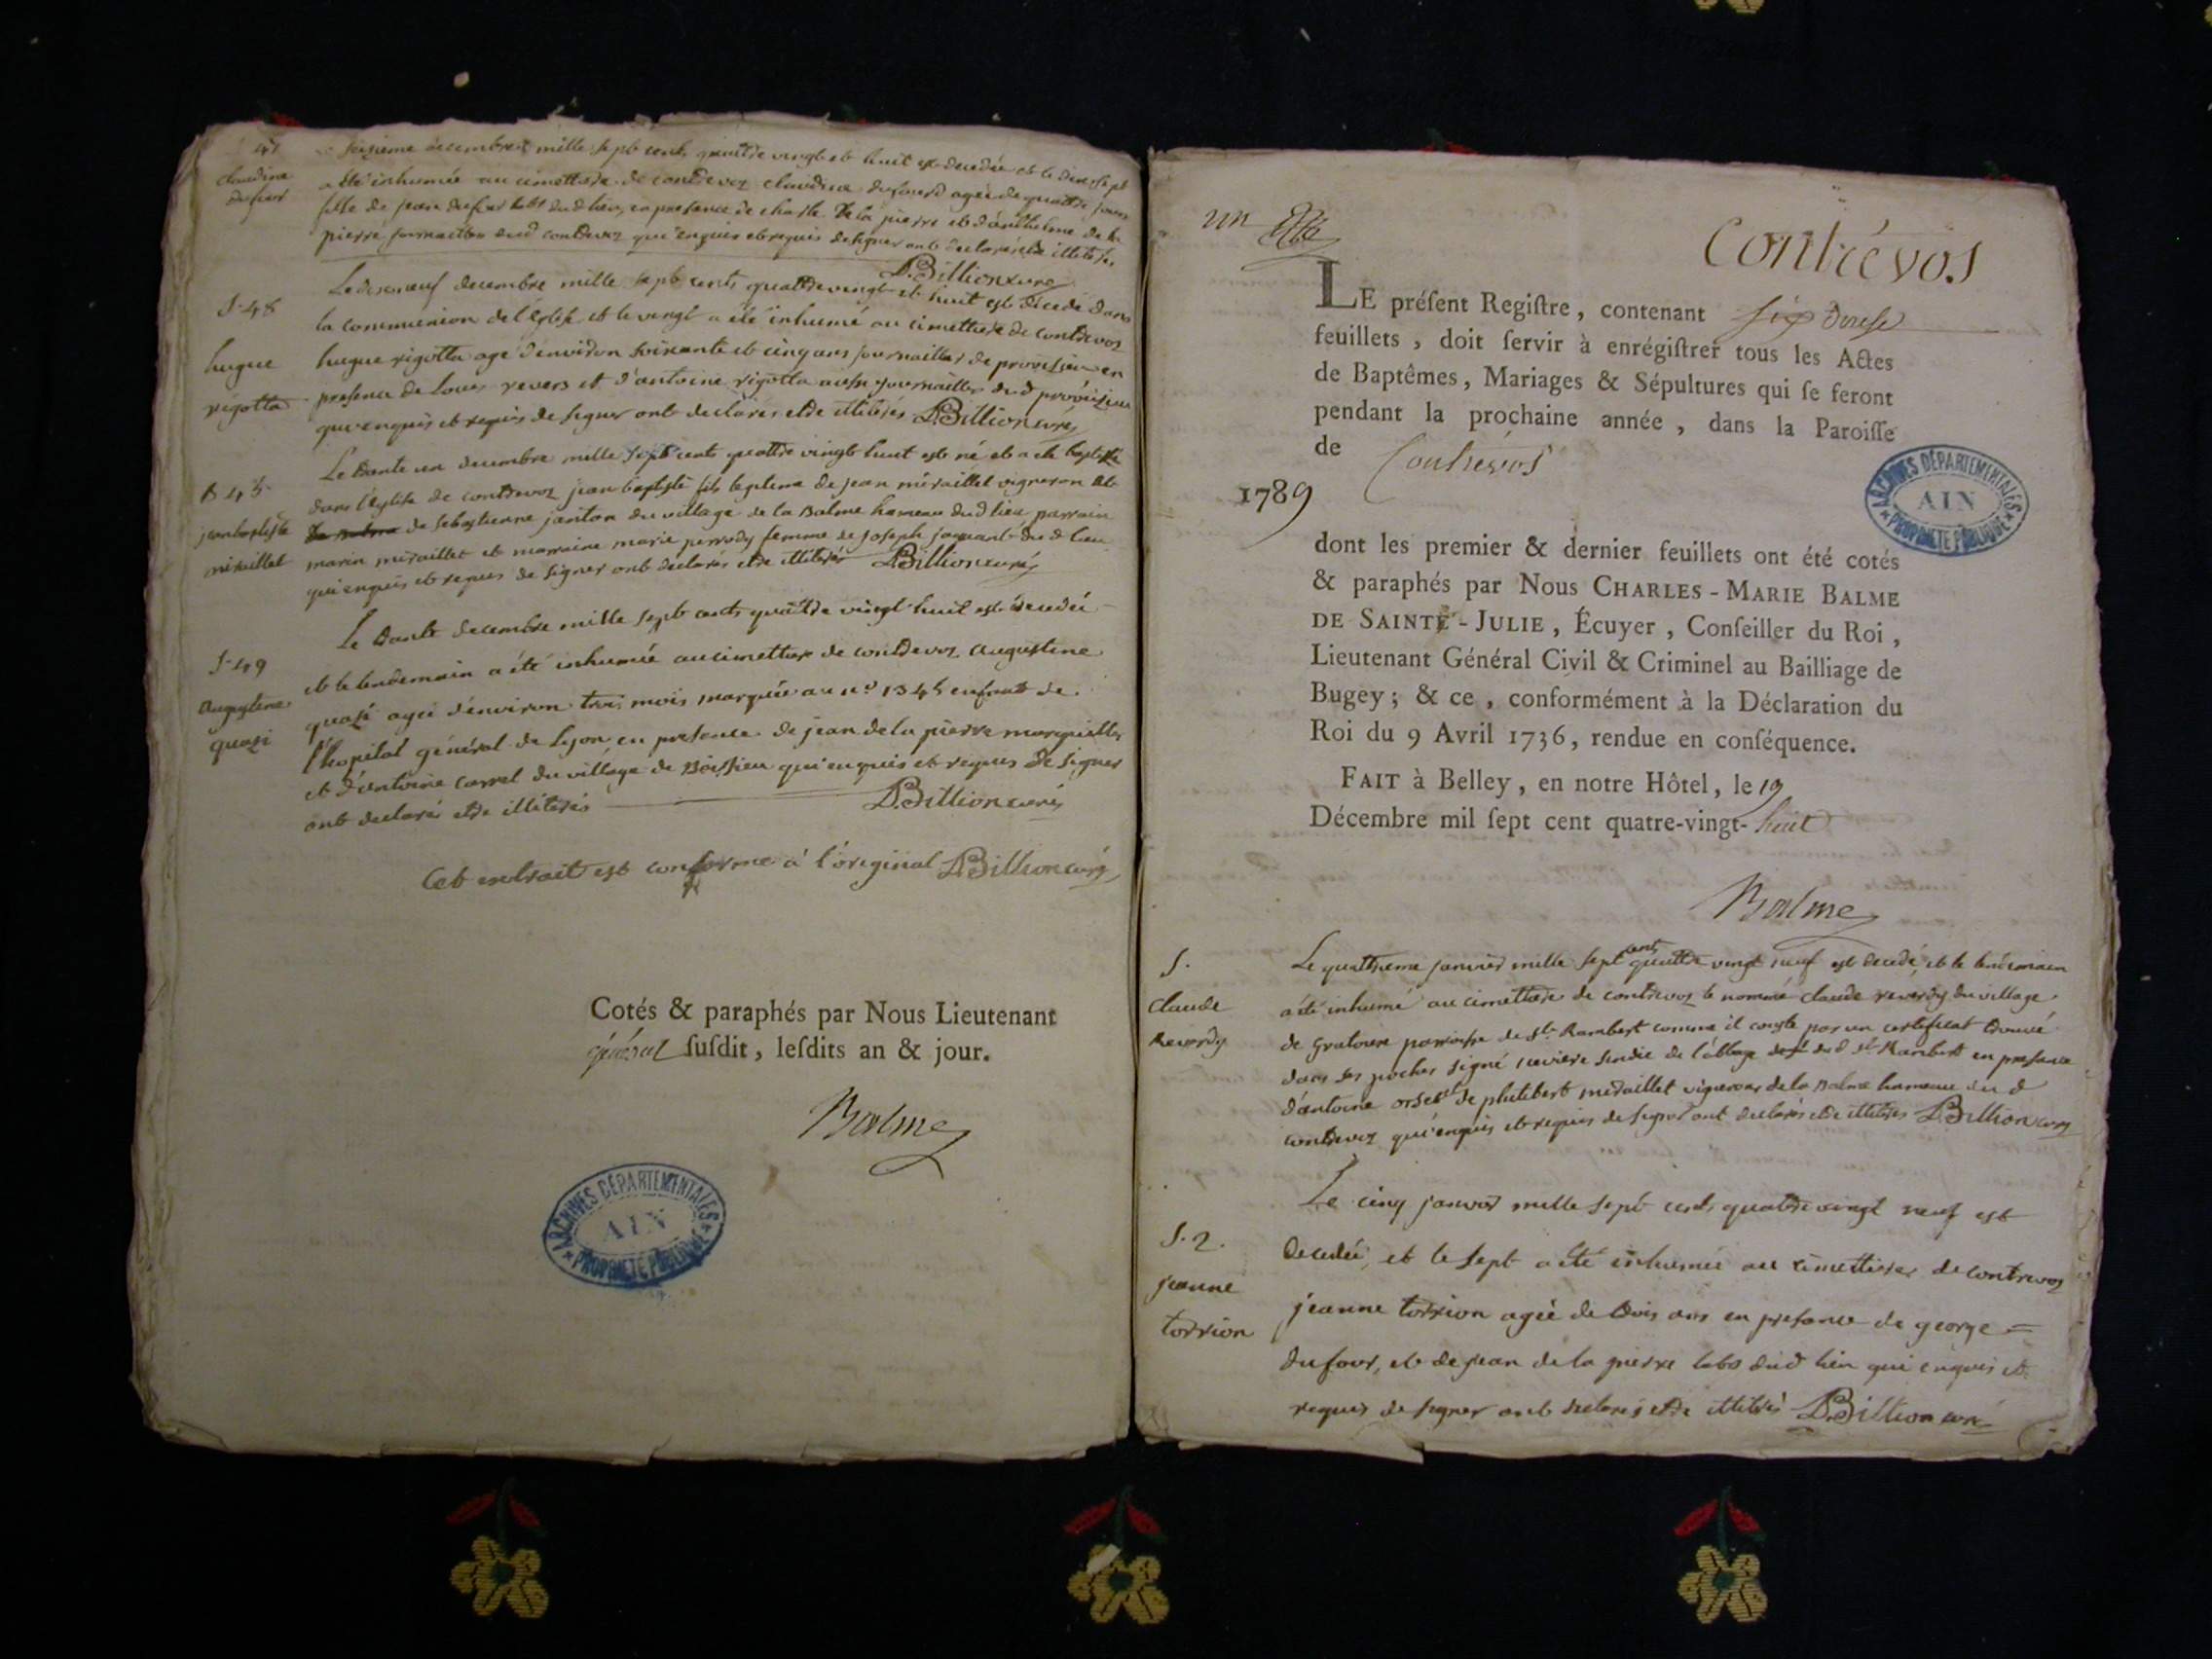 47
claudine
dufour
seizieme decembre mille sept cents quattre vingt et huit est decedée et le dix sept
a été inhumée au cimettiere de contrevoz claudine dufourd agée de quattre jours
fille de jean dufour habt dud lieu, en presence de charle de la pierre et d'anthelme de la
pierre, journaillier dud contrevoz qui enquis et requis de signer ont declarés etre illiterés.
D.Billion curé
S. 48
hugue
rigottad
Le dixneuf decembre mille sept cents quattre vingt et huit est décedé dans
la communion de l'église et le vingt a été inhumé au cimettiere de contrevoz
hugue rigotta agé d'environ soixante et cinq ans journaillier de proveisieu en
presence de louis revers et d'antoine rigotta aussi journaillier dud proveisieu
qui enquis et requis de signer ont declarés etre illiterés D.Billion curé
B 45
jean baptiste
miraillet
Le trente un decembre mille sept cents quattre vingt huit est né et a été baptisé
dans l'église de contrevoz jean baptiste fils legitime de jean miraillet vigneron et
de sebastienne janton du village de la Balme hameau dud lieu parrain
marin miraillet et marraine marie perrody femme de joseph jaquant dud lieu
qui enquis et requis de signer ont declarés etre illiterés D.Billion curé
S. 49
augustine
quasi
Le trente decembre mille sept cents quattre vingt huit est decedée
et le lendemain a été inhumée au cimettiere de contrevoz augustine
quasi agée d'environ trois mois marquée au n° 1345 enfant de
l'hopital général de Lyon en presence de jean de la pierre marguillier
et d'antoine carrel du village de Boissieu qui enquis et requis de signer
ont declarés etre illiterés D.Billion curé
Cet extrait est conforme à l'original D.Billion curé
Cotés & paraphés par Nous Lieutenant
général ſuſdit, leſdits an & jour.
Balme
ARCHIVES DÉPARTEMENTALES
AIN
PROPRIÉTÉ PUBLIQUE
un
Contrévos
LE préſent Regiſtre, contenant douse
feuillets, doit ſervir à enrégiſtrer tous les Actes
de Baptêmes, Mariages & Sépultures qui ſe feront
pendant la prochaine année, dans la Paroiſſe
de Contrevos
1789
ARCHIVES DÉPARTEMENTALES
AIN
PROPRIÉTÉ PUBLIQUE
dont les premier & dernier feuillets ont été cotés
& paraphés par Nous CHARLES-MARIE BALME
DE SAINTE-JULIE, Écuyer, Conſeiller du Roi,
Lieutenant Général Civil & Criminel au Bailliage de
Bugey; & ce, conformément à la Déclaration du
Roi du 9 Avril 1736, rendue en conſéquence.
FAIT à Belley, en notre Hôtel, le 19
Décembre mil ſept cent quatre-vingt-huit
Balme
S.
claude
Reverdy
Le quattrieme janvier mille sept cents quattre vingt neuf est decedé, et le lendemain
a été inhumé au cimettiere de contrevoz le nommé claude reverdy du village
de gratoux parroisse de St Rambert comme il conste par un certificat trouvé
dans ses poches signé sindic de l'abbaye dud St Rambert en presence
d'antoine orset et de philibert miraillet vignerons de la Balme hameau dud
contrevoz qui enquis et requis de signer ont declarés etre illiterés D.Billion curé
S. 2.
jeanne
torrion
Le cinq janvier mille sept cents quattre vingt neuf est
decedée, et le sept a été inhumée au cimettiere de contrevoz
jeanne torrion agée de trois ans en presence de george =
dufour, et de jean de la pierre habs dud lieu qui enquis et
requis de signer ont declarés etre illiterés D.Billion curé